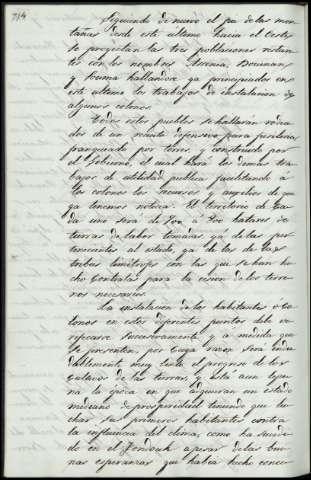 214
siguiendo de nuevo el pie de las mon-
tañas desde este ultimo hacia el Oeste
se proyectan las tres poblaciones restan-
tes con los nombres
y Souma hallandose ya principiados en
este ultimo los trabajos de instalacion de
algunos colonos.
Todos estos pueblos se hallarán rodea-
dos de un recinto defensivo
flanqueado por torres, y construido por
el Gobierno, el cual hará los demas tra-
bajos de utilidad publica facilitando á
los colonos los recursos y ausilios de que
ya tenemos noticia. El territorio de ca-
da uno será de 400 á 500 hectareas de
tierras de labor tomadas ya de las per-
tenecientes al estado, ya de las de las
tribus limitrofes con las que se han he-
cho contratas para la cesion de los terre-
nos necesarios.
La instalacion de los habitantes ó co-
lonos en estos diferentes puntos debe ve-
rificarse sucesivamente y á medida que
se presenten, por cuya razon será indu-
dablemente muy lento el progreso de los
cultivos de las tierras, y está aun leja-
na la época en que adquieran un estado
mediano de prosperidad teniendo que lu-
char sus primeros habitantes contra
la influencia del clima, como ha sucedi-
do en el Fondouk apesar de las bue-
nas esperanzas que habia hecho conce-